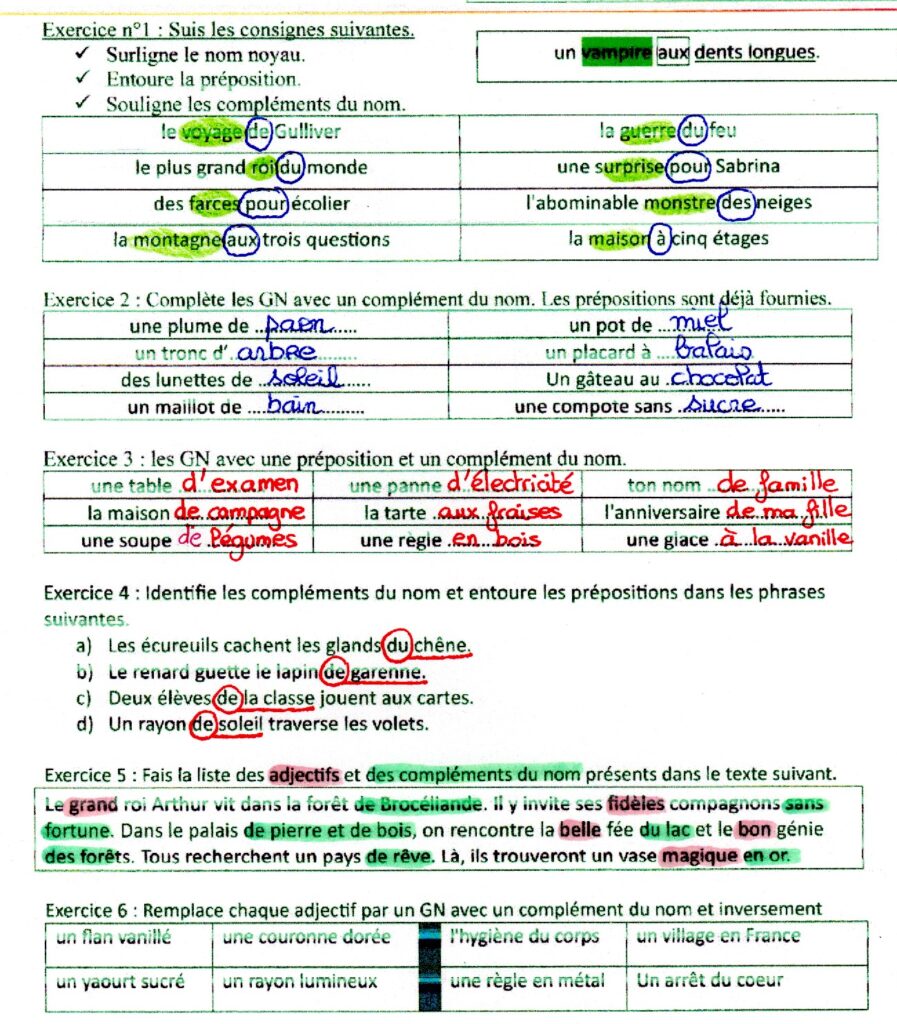 Exercice n°1 : Suis les consignes suivantes.
✓ Surligne le nom noyau.
✓ Entoure la préposition.
✓ Souligne les compléments du nom.
un vampire aux dents longues.
le voyage de Gulliver la guerre du feu
le plus grand roi du monde une surprise pour Sabrina
des farces pour écolier l'abominable monstre des neiges
la montagne aux trois questions la maison à cinq étages
Exercice 2 : Complète les GN avec un complément du nom. Les prépositions sont déjà fournies.
une plume de ..paon...... un pot de ...miel
un tronc d' arbre......... un placard à ....balais
des lunettes de ..soleil...... Un gâteau au .chocolat
un maillot de ....bain.......... une compote sans .sucre.....
Exercice 3 : les GN avec une préposition et un complément du nom.
une table .d'examen une panne d'électricité ton nom ..de famille
la maison de campagne la tarte .aux fraises l'anniversaire de ma fille
une soupe de légumes une règle .en bois une glace .à la vanille
Exercice 4 : Identifie les compléments du nom et entoure les prépositions dans les phrases
suivantes.
a) Les écureuils cachent les glands du chêne.
b) Le renard guette le lapin de garenne.
c) Deux élèves de la classe jouent aux cartes.
d) Un rayon de soleil traverse les volets.
Exercice 5 : Fais la liste des adjectifs et des compléments du nom présents dans le texte suivant.
Le grand roi Arthur vit dans la forêt de Brocéliande. Il y invite ses fidèles compagnons sans
fortune. Dans le palais de pierre et de bois, on rencontre la belle fée du lac et le bon génie
des forêts. Tous recherchent un pays de rêve. Là, ils trouveront un vase magique en or.
Exercice 6 : Remplace chaque adjectif par un GN avec un complément du nom et inversement
un flan vanillé une couronne dorée l'hygiène du corps un village en France
un yaourt sucré un rayon lumineux une règle en métal Un arrêt du coeur